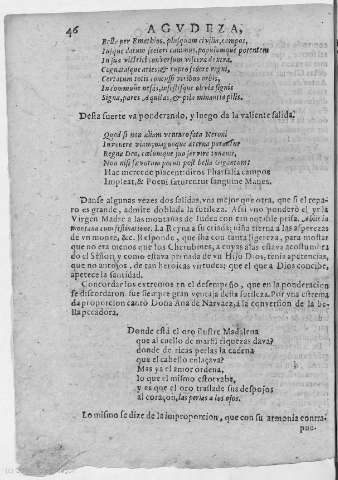 46 AGVDEZA,
Bella per Emathios, plusquam civilia, campos,
Iusque datum sceleri canimus, populumque potentem
In sua victrici conversum viscera dextra,
Cognatasque acies, & rupto fœdere regni,
Certatum totis concussi viribus orbis,
In commune nefas, infestisque obvia signis
Signa, pares Aquilas, & pila minantia pilis.
Desta suerte va ponderando, y luego da la valiente salida.
Quod si non aliam venturo fata Neroni
Invenere viam; magnoque æterna parantur
Regna Deo, cælumque suo servire tonanti,
Non nisi sævorum potuit post bella gigantum:
Hac mercede placent diros Pharsalia campos
Impleat, & Pœni saturentur sanguine Manes.
Danse algunas vezes dos salidas, vna mejor que otra, que si el repa-
ro es grande, admite doblada la sutileza. Assi vno ponderò el yr la
Virgen Madre a las montañas de Iudea con tan notable prisa. Abiit in
montana cum festinatione. La Reyna a su criada; niña tierna a las asperezas
de vn monte, &c. Responde, que iba con tanta ligereza, para mostrar
que no era menos que los Cherubines, a cuyas alas estava acostumbra
do el Señor; y como estava preñada de vn Hijo Dios, tenia apetencias,
que no antojos, de tan heroicas virtudes; que el que a Dios concibe,
apetece la santidad.
Concordar los extremos en el desempeño, que en la ponderacion
se discordaron fue siempre gran ventaja desta sutileza. Por vna estrema
da proporcion cantò Doña Ana de Narvaez, a la conversion de la be
lla pecadora.
Donde està el oro ilustre Madalena
que al cuello de marfil riquezas dava?
donde de ricas perlas la cadena
que el cabello enlaçava?
Mas ya el amor ordena,
lo que el mismo estorvaba,
y es que el oro traslade sus despojos
al coraçon, las perlas a los ojos.
Lo mismo se dize de la improporcion, que con su armonia contra-
pue-